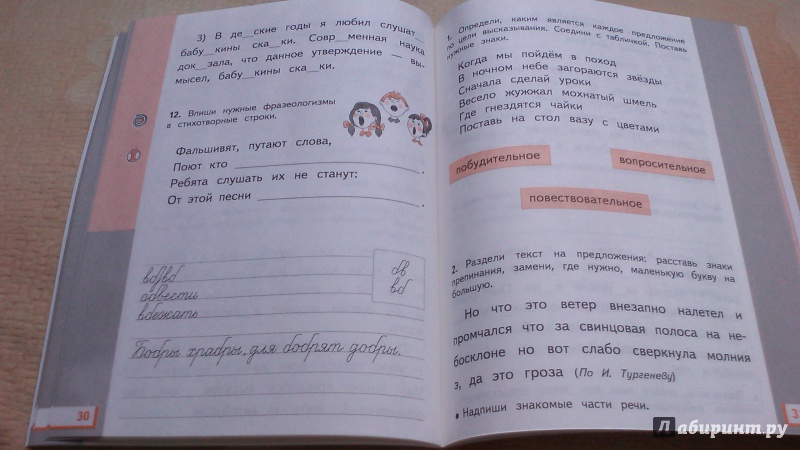 3) В де__ские годы я любил слушат__
бабу__кины ска__ки. Совр__менная наука
док__зала, что данное утверждение — вы-
мысел, бабу__кины ска__ки.
12. Впиши нужные фразеологизмы
в стихотворные строки.
Фальшивят, путают слова,
Поют кто ____________ .
Ребята слушать их не станут:
От этой песни ____________ .
вб/вб
одвести
вбежать
дв
вд
Бобры храбры, для бобрят добры.
30
1. Определи, каким является каждое предложение
по цели высказывания. Соедини с табличкой. Поставь
нужные знаки.
Когда мы пойдём в поход
В ночном небе загораются звёзды
Сначала сделай уроки
Весело жужжал мохнатый шмель
Где гнездятся чайки
Поставь на стол вазу с цветами
побудительное
вопросительное
повествовательное
2. Раздели текст на предложения: расставь знаки
препинания, замени, где нужно, маленькую букву на
большую.
Но что это ветер внезапно налетел и
промчался что за свинцовая полоса на не-
босклоне но вот слабо сверкнула молния
э, да это гроза (По И. Тургеневу)
• Надпиши знакомые части речи.
3
Лабиринт.ру